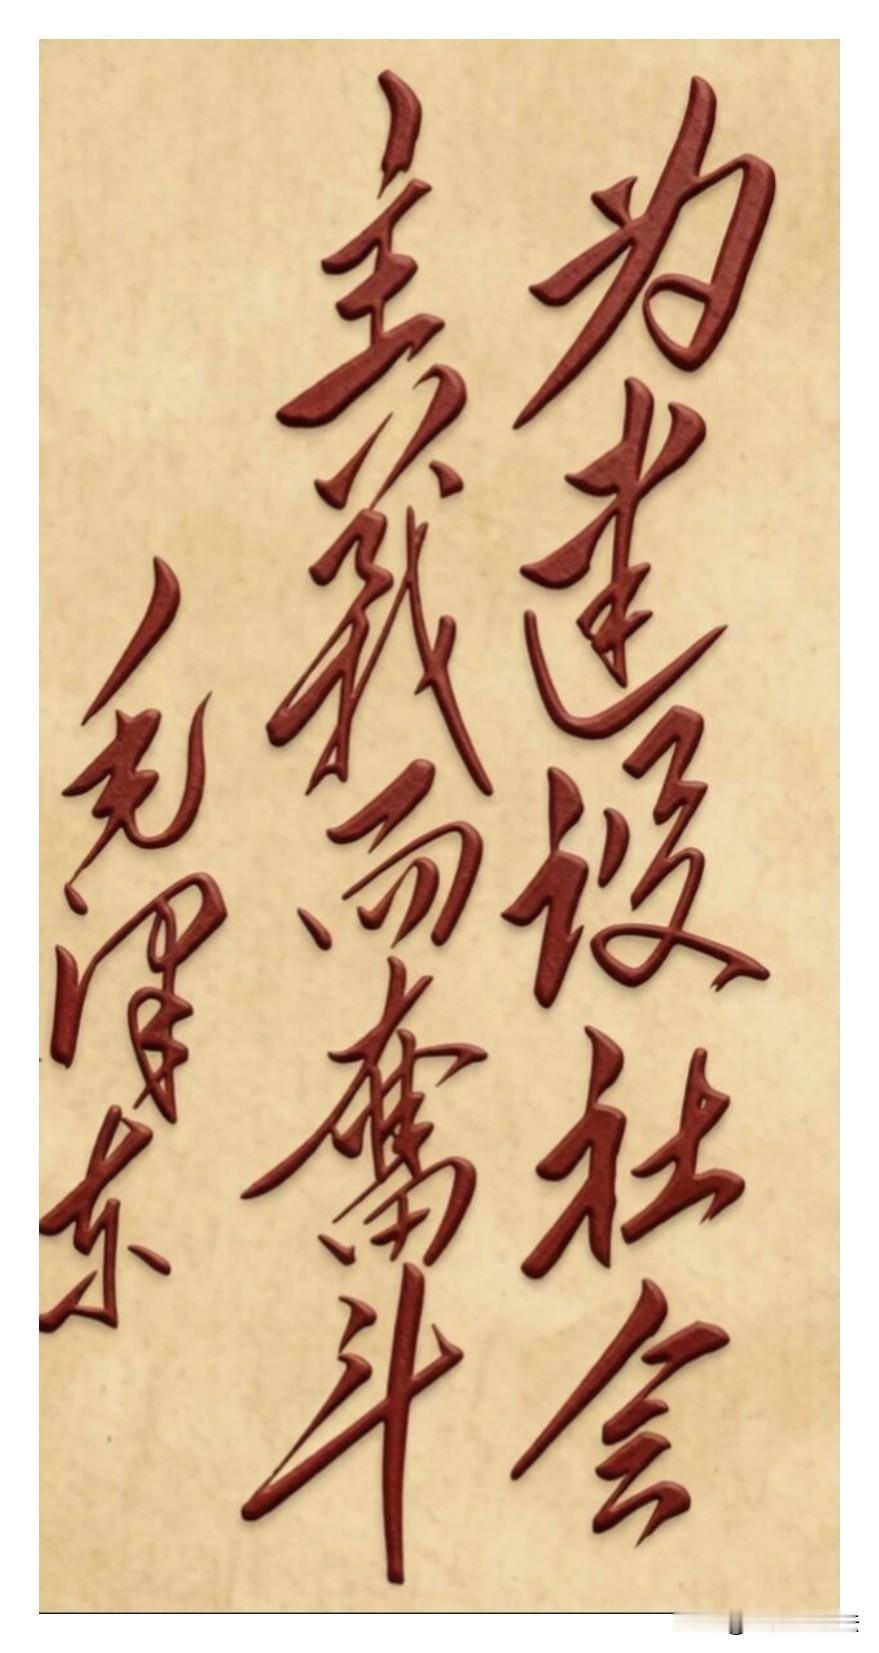 为建设社会
主義而奮斗
毛泽东